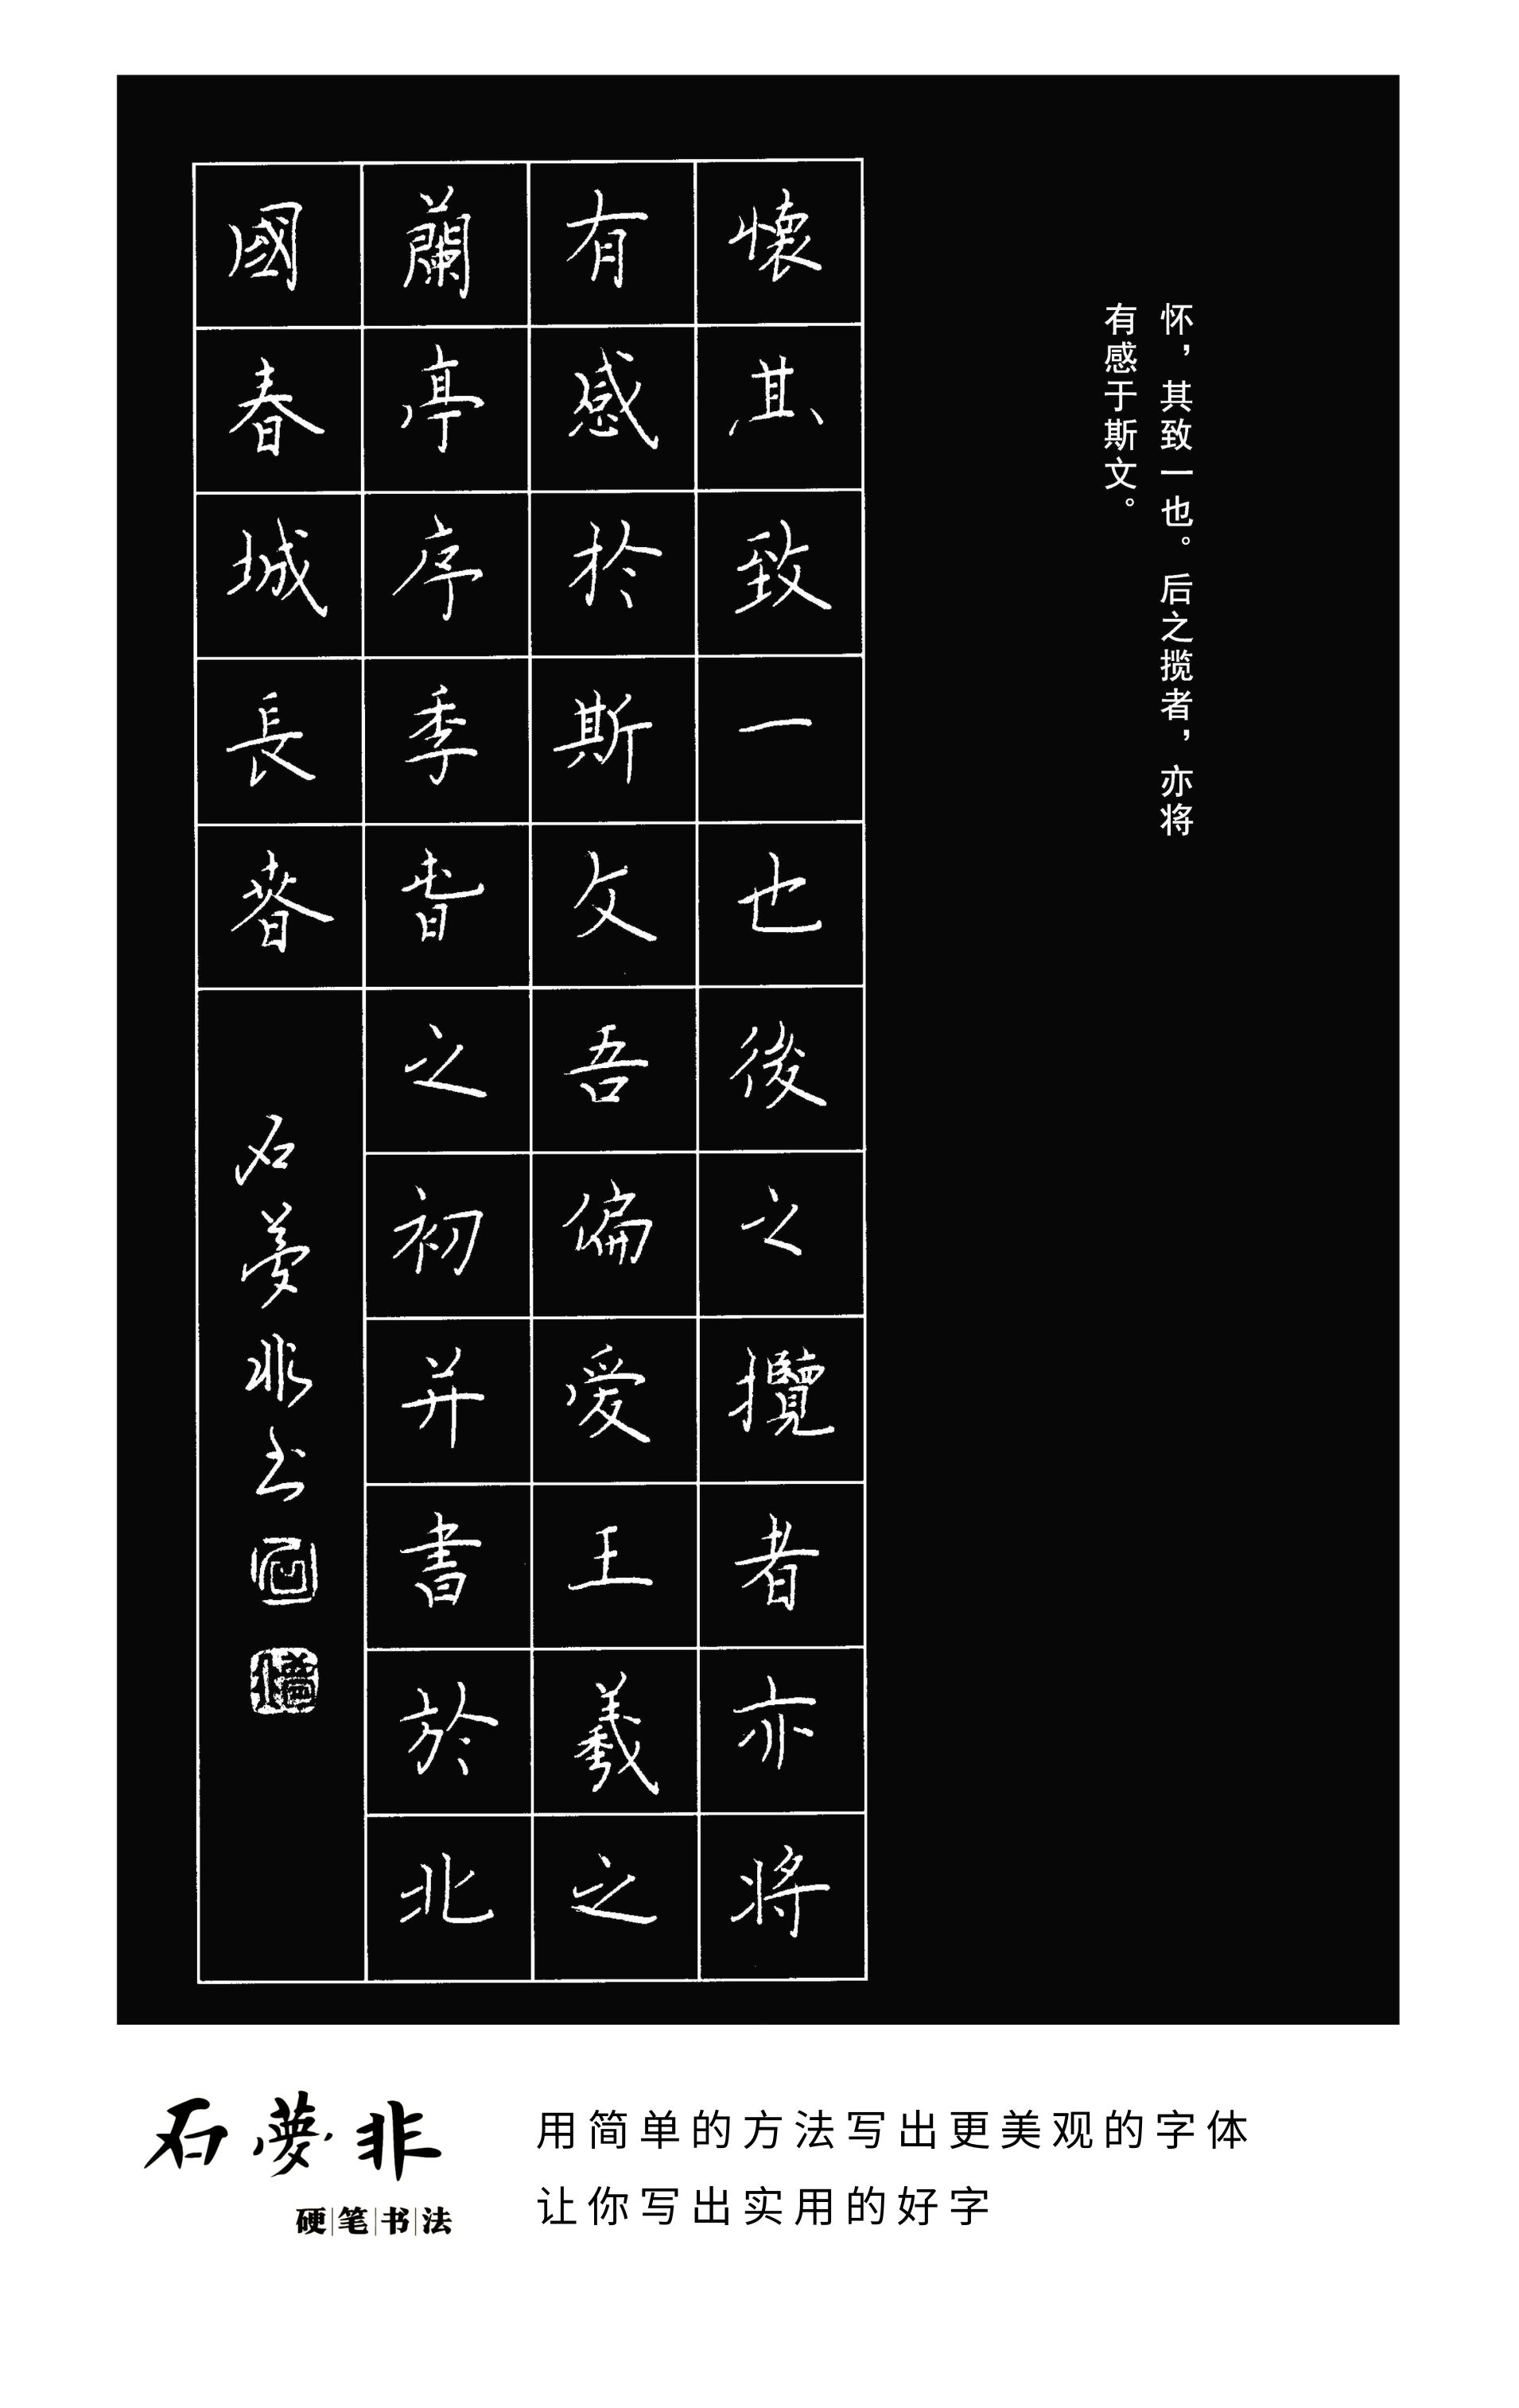 怀，其致一也。后之揽者，亦将
有感于斯文。
懷其致一也後之攬者亦将
有感於斯文吾偏爱王羲之
蘭亭序季旾之初并書於北
國春城長春
石夢非书
石夢非
硬笔书法
用简单的方法写出更美观的字体
让你写出实用的好字